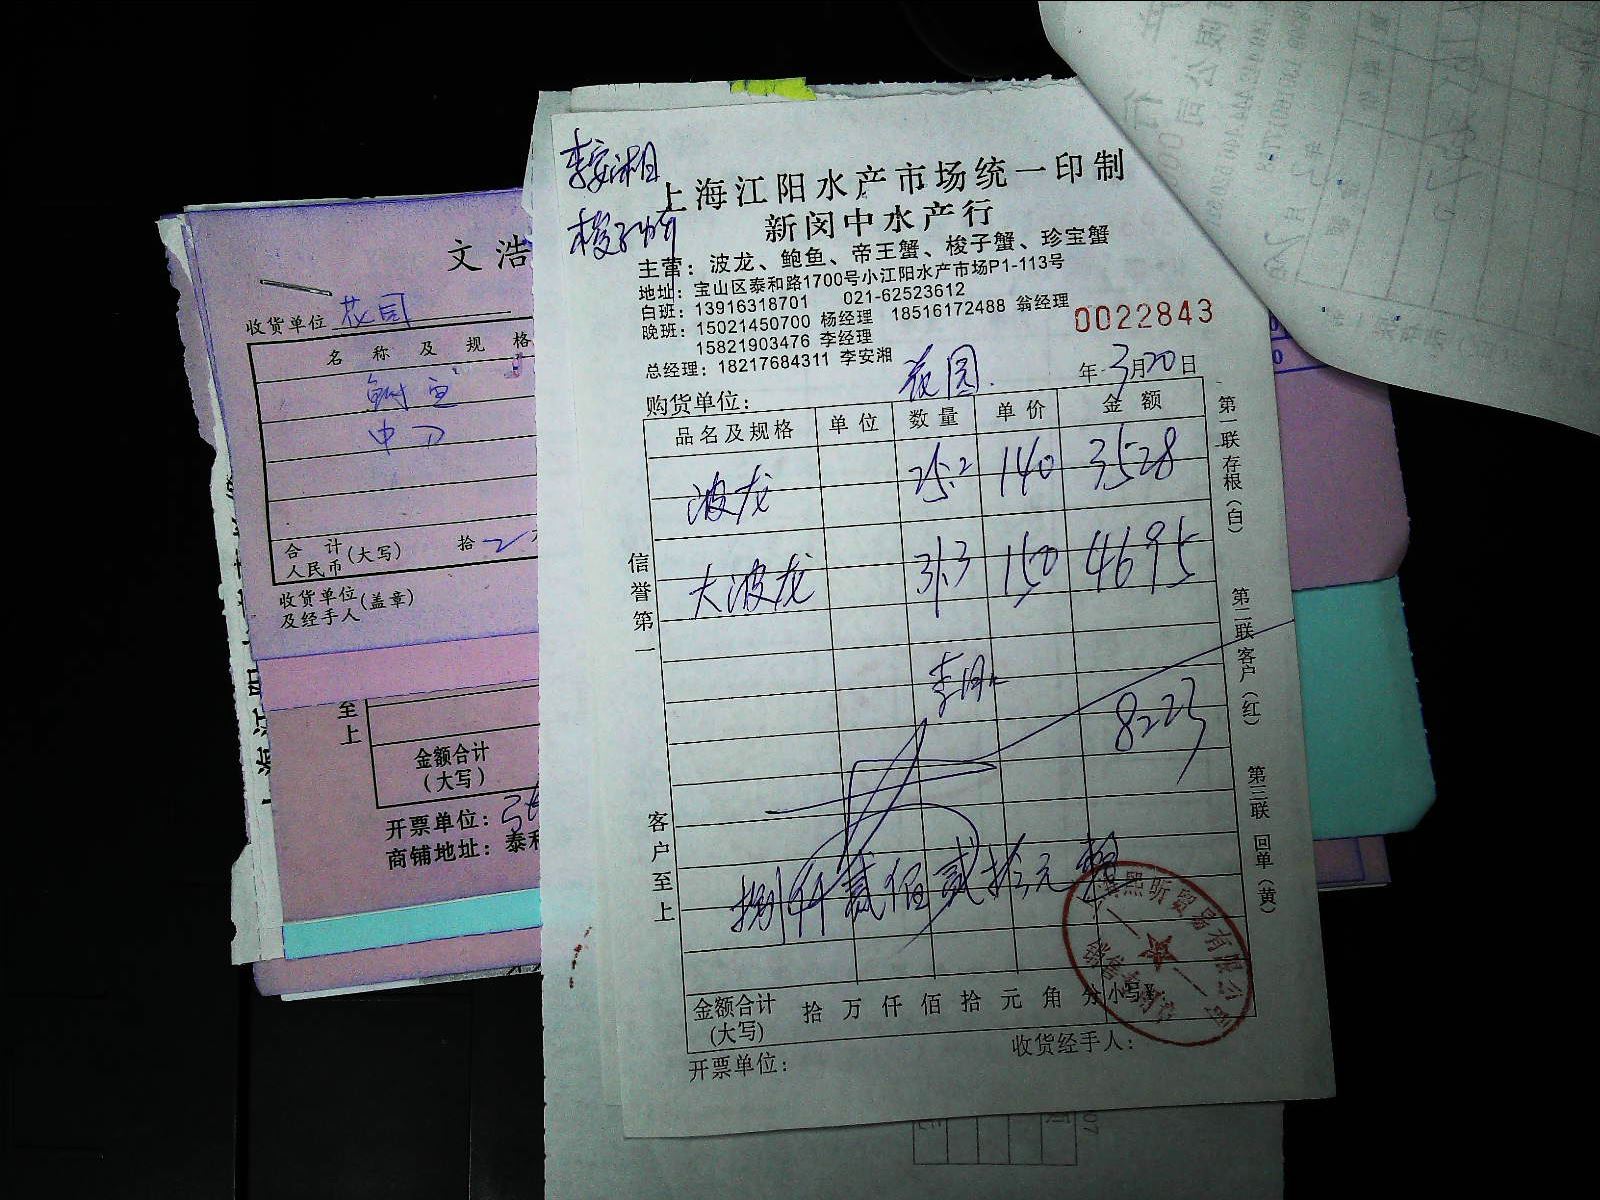 李安湘
梭子蟹
上海江阳水产市场统一印制
新闵中水产行
主营：波龙、鲍鱼、帝王蟹、梭子蟹、珍宝蟹
地址：宝山区泰和路1700号小江阳水产市场P1-113号
白班：13916318701 021-62523612
晚班：15021450700 杨经理 18516172488 翁经理
15821903476 李经理
总经理：18217684311 李安湘
0022843
购货单位： 花园. 年 3月20日
品名及规格 单位 数量 单价 金额
波龙 25.2 140 3528
大波龙 31.3 150 4695
8223
捌仟贰佰贰拾元
金额合计 拾 万 仟 佰 拾 元 角 分 小写¥
(大写)
开票单位： 收货经手人：
信誉第一
客户至上
第一联 存根（白）
第二联 客户（红）
第三联 回单（黄）
熙昕贸易有限公司
文浩
收货单位 花园
名称及规格
中刀
合计 (大写) 拾
人民币
收货单位 (盖章)
及经手人
至上
金额合计
（大写）
开票单位：
商铺地址：泰和